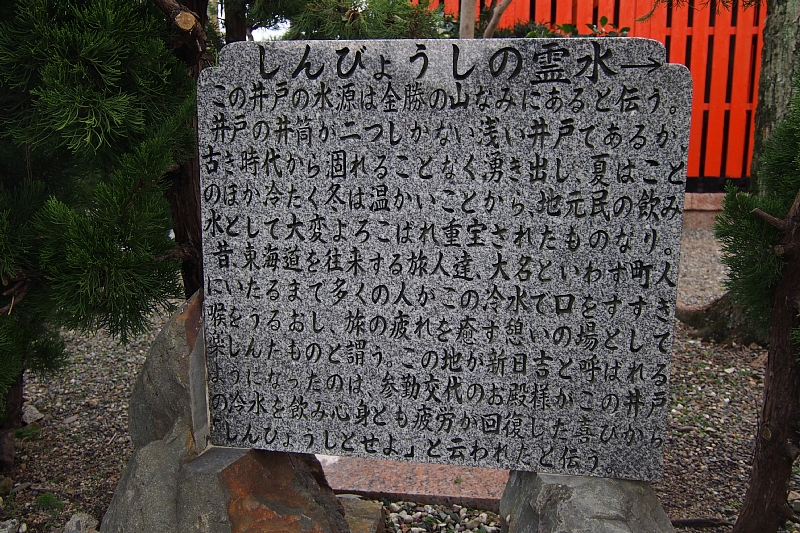 しんびょうしの霊水→
この井戸の水源は金勝の山なみにあると伝う。
井戸の井筒が二つしかない浅い井戸であるが、
古き時代から涸れることなく、湧き出し、夏はこと
のほか冷たく冬は温かいことから、地元民の飲み
水として大変よろこばれ重宝されたものなり。
昔、東海道を往来する旅人達、大名といわず町人
にいたるまで多くの人がこの冷水で口をすすぎ
喉をうるおし、旅の疲れを癒す憩いの場として
楽しんだものと謂う。この地が新日吉と呼ばれる
ようになったのは、参勤交代のお殿様がこの井戸
の冷水を飲み心身とも疲労が回復したと喜びから
「しんびょうしとせよ」と云われたと伝う